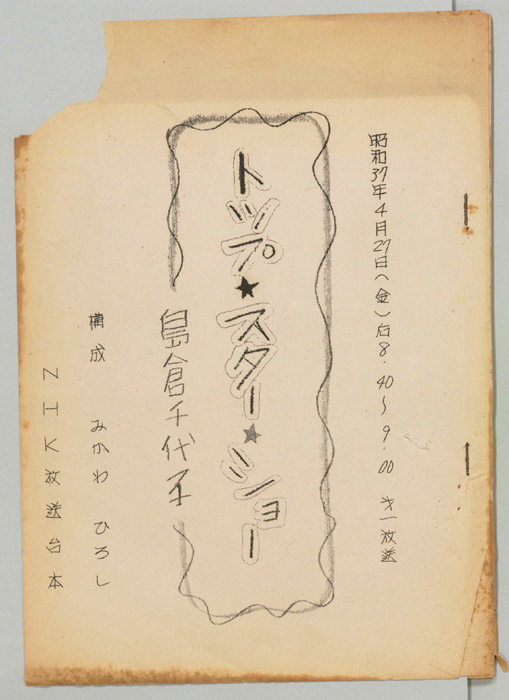 昭和37年4月27日(金)后8.40~9.00 才一放送
トップ★スター★ショー
島倉千代子
構成 みかわ ひろし
NHK放送台本